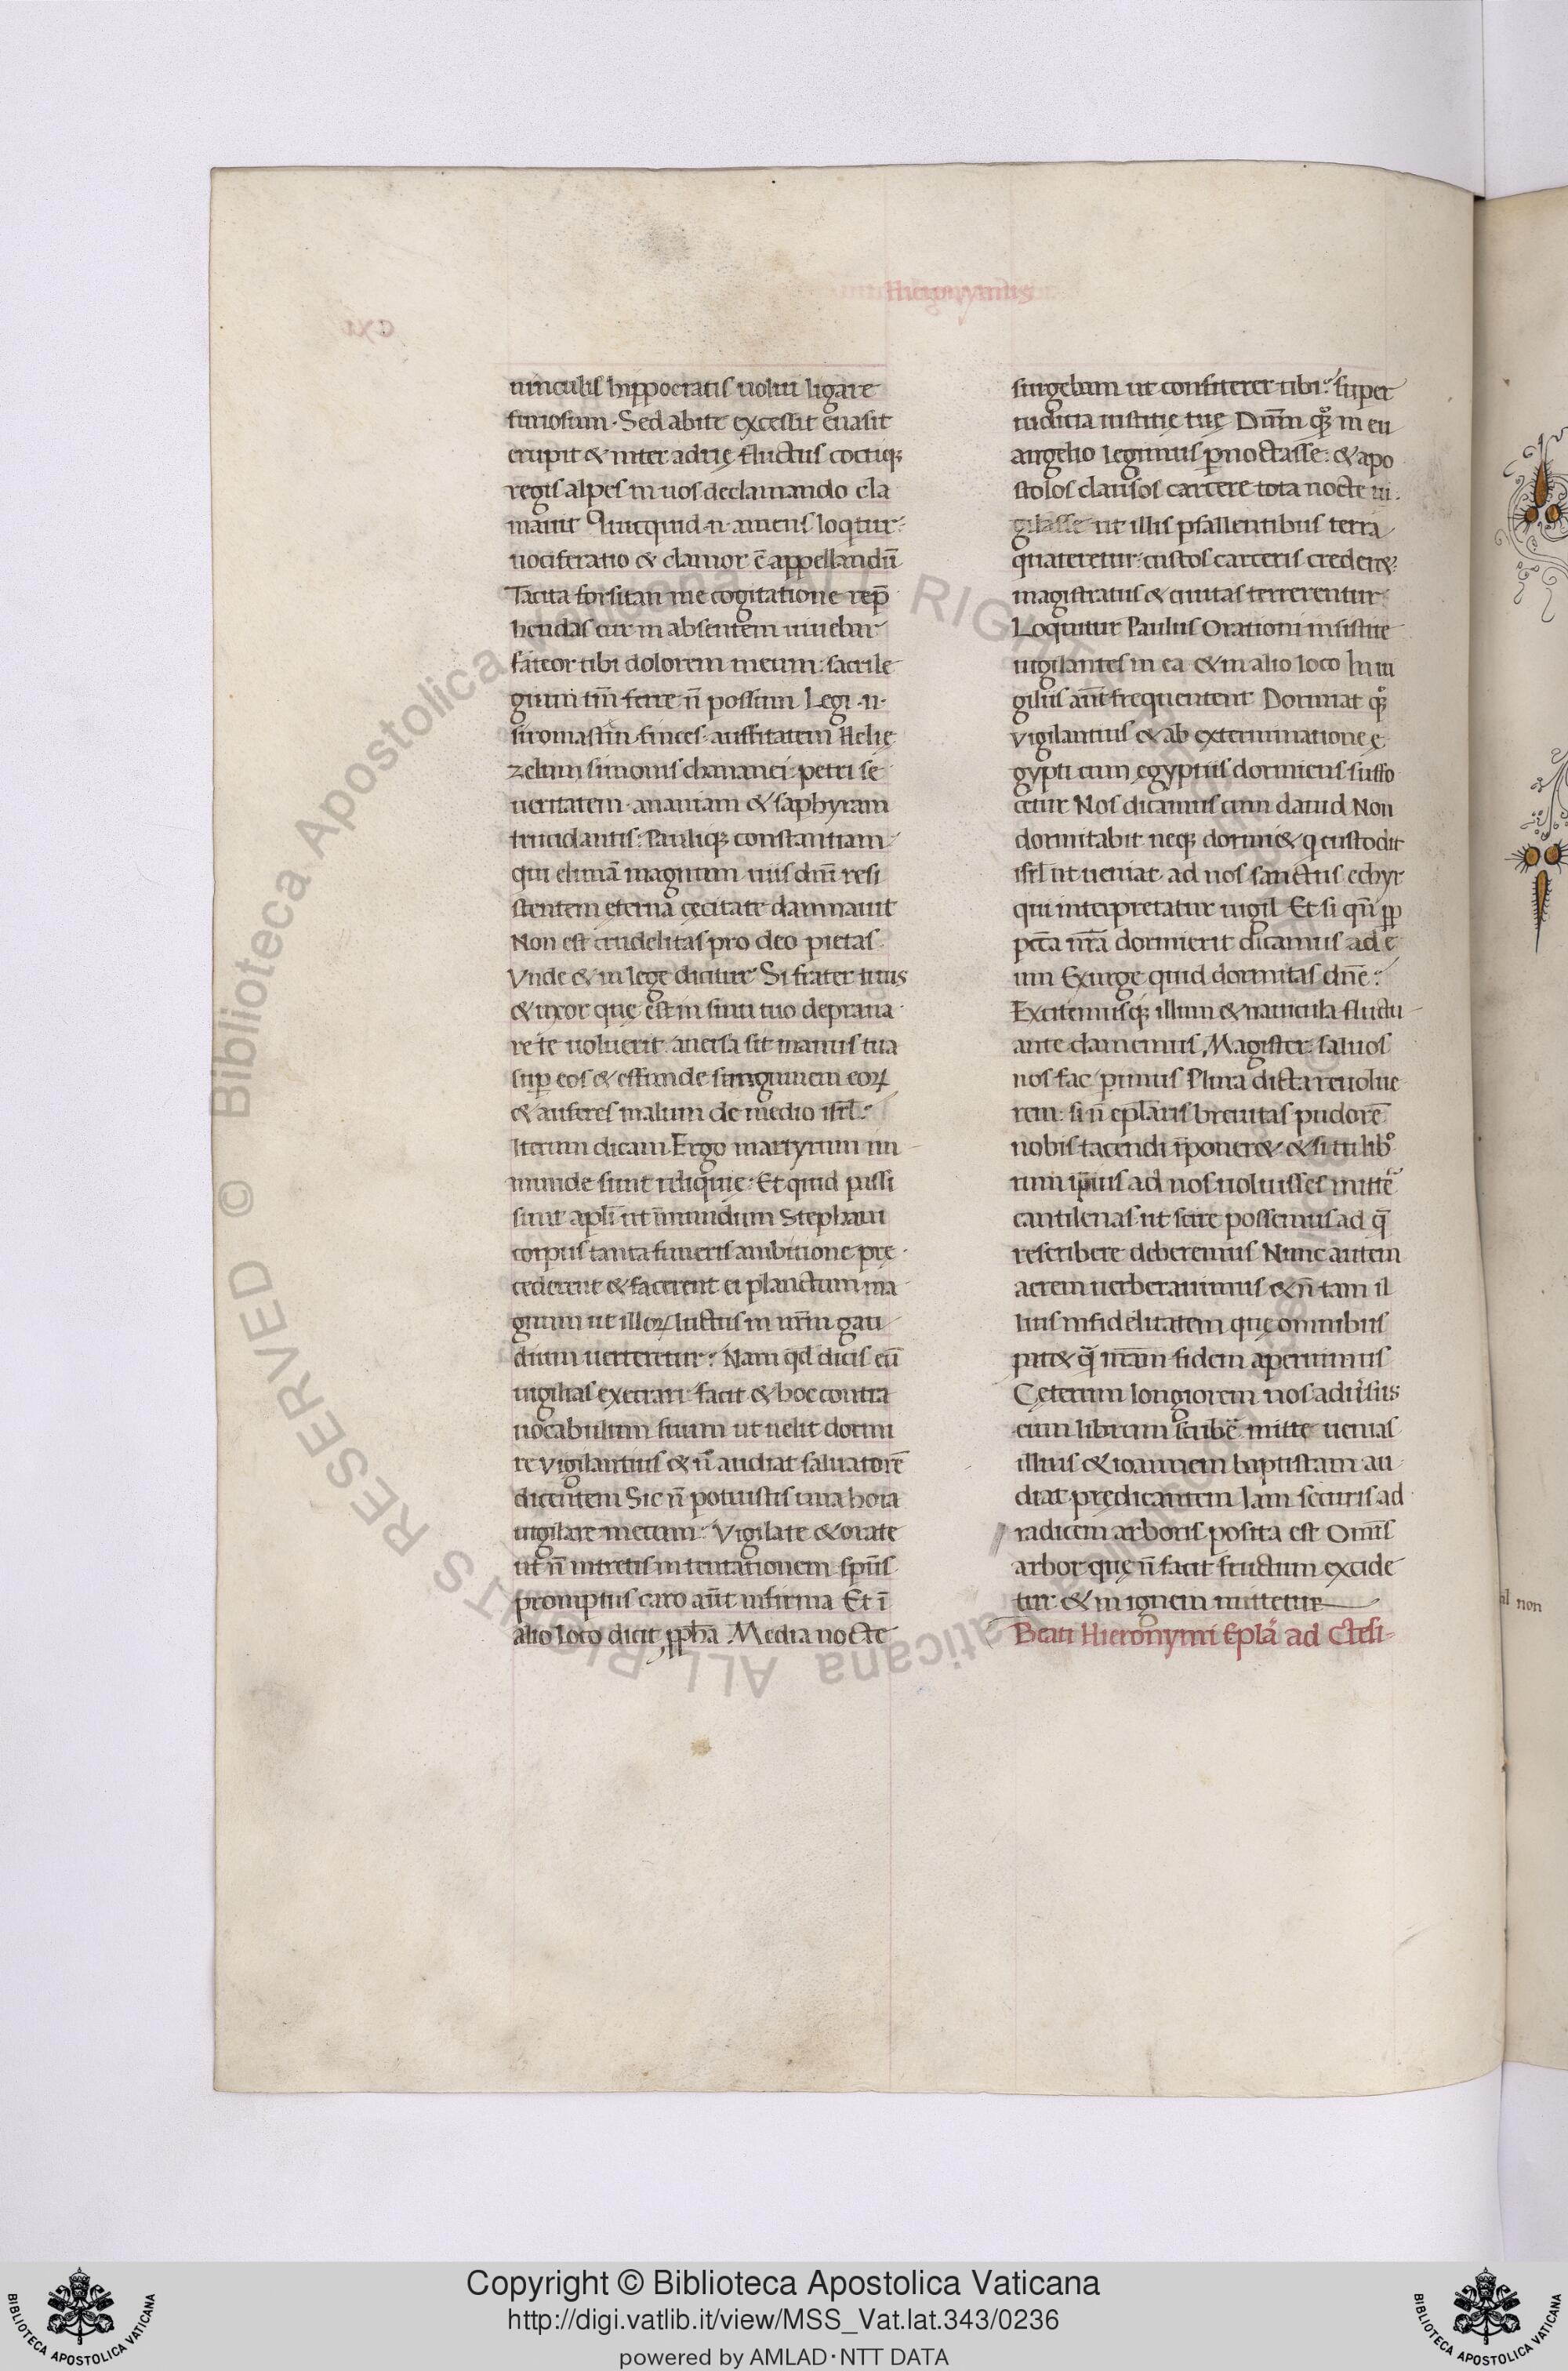 Hieronymus
uinculis hippocratis uolui ligare
furiosum. Sed abiit excessit euasit
erupit & inter adrię fluctus coctiiq;
regis alpes in uos declamando cla
mauit Quicquid .n. amens loqtur:
uociferatio & clamor ē appellandū
Tacita forsitan me cogitatione rep̄
hendas cur in absentem inuehar
fateor tibi dolorem meum: sacrile
gium tm̄ ferre n̄ possum Legi .n.
siromasten finees. austitatem Helię
zelum simonis chananei: petri se
ueritatem. ananiam & saphyram
trucidantis: Pauliq; constantiam
qui elimā magnum uiis dn̄i resi
stentem eterna cęcitate damnauit
Non est crudelitas pro deo pietas
Vnde & in lege dicitur Si frater tuus
& uxor quę est in sinu tuo depraua
re te uoluerit. anersa sit manus tua
sup̄ eos & effunde sanguinem eoꝝ
& auferes malum de medio isrl̄:
Iterum dicam Ergo martyrum im
munde sunt reliquie. Et quid passi
sunt apl̄i ut īmundum Stephani
corpus tanta funeris ambitione pre
cederent & facerent ei planctum ma
gnum ut illoꝝ luctus in nr̄m gau
dium uerteretur: Nam qd̄ dicis eū
uigilias execrari facit & hoc contra
uocabulum suum ut uelit dormi
re vigilantius & n̄ audiat saluatorē
dicentem Sic n̄ potuistis una hora
uigilare mecum: Vigilate & orate
ut n̄ intretis in tentationem sp̄us
promptus caro aūt infirma Et ī
alio loco dicit ꝓpha Media nocte
surgebam ut confiterer tibi: super
iudicia iustitię tuę Dn̄m qq; in eu
angelio legimus ꝑnoctasse: & apo
stolos clausos carcere tota nocte ui
gilasse ut illis psallentibus terra
quateretur: custos carceris crederet
magistratus & ciuitas terrerentur
Loquitur Paulus Orationi insistite
uigilantes in ea & in alio loco In ui
giliis aūt frequenter Dormiat qq;
vigilantius & ab exterminatione ę
gypti cum ęgyptiis dormiens suffo
cetur Nos dicamus cum dauid Non
dormitabit neq; dormi& q custodit
isrl̄ ut ueniat ad nos sanctus echyr
qui interpretatur uigil Et si qn̄ ꝓp
pctā nrā dormierit dicamus ad e
um Exurge quid dormitas dn̄e:
Excitemusq; illum & nauicula fluctu
ante clamemus Magister saluos
nos fac pimus Plura dicta reuolue
rem: si n̄ ep̄laris breuitas pudorē
nobis tacendi īponer& & si tu lib
rum ipsius ad nos uoluisses mittē
cantilenas ut scire possemus ad q̄
rescribere deberemus Nunc autem
aerem uerberauimus & n̄ tam il
lius infidelitatem quę omnibus
pat& q̄ nrām fidem aperuimus
Ceterum longiorem nos adūsus
eum librum scribē mitte uenias
illius & ioannem baptistam au
diat prędicantem Iam securis ad
radicem arboris posita est Omīs
arbor quę n̄ facit fructum excide
tur & in ignem mittetur
Beati Hieronymi Ep̄la ad Ctesi-
al non
Copyright © Biblioteca Apostolica Vaticana
http://digi.vatlib.it/view/MSS_Vat.lat.343/0236
powered by AMLAD·NTT DATA
BIBLIOTECA APOSTOLICA VATICANA
BIBLIOTECA APOSTOLICA VATICANA
© Biblioteca Apostolica Vaticana ALL RIGHTS RESERVED